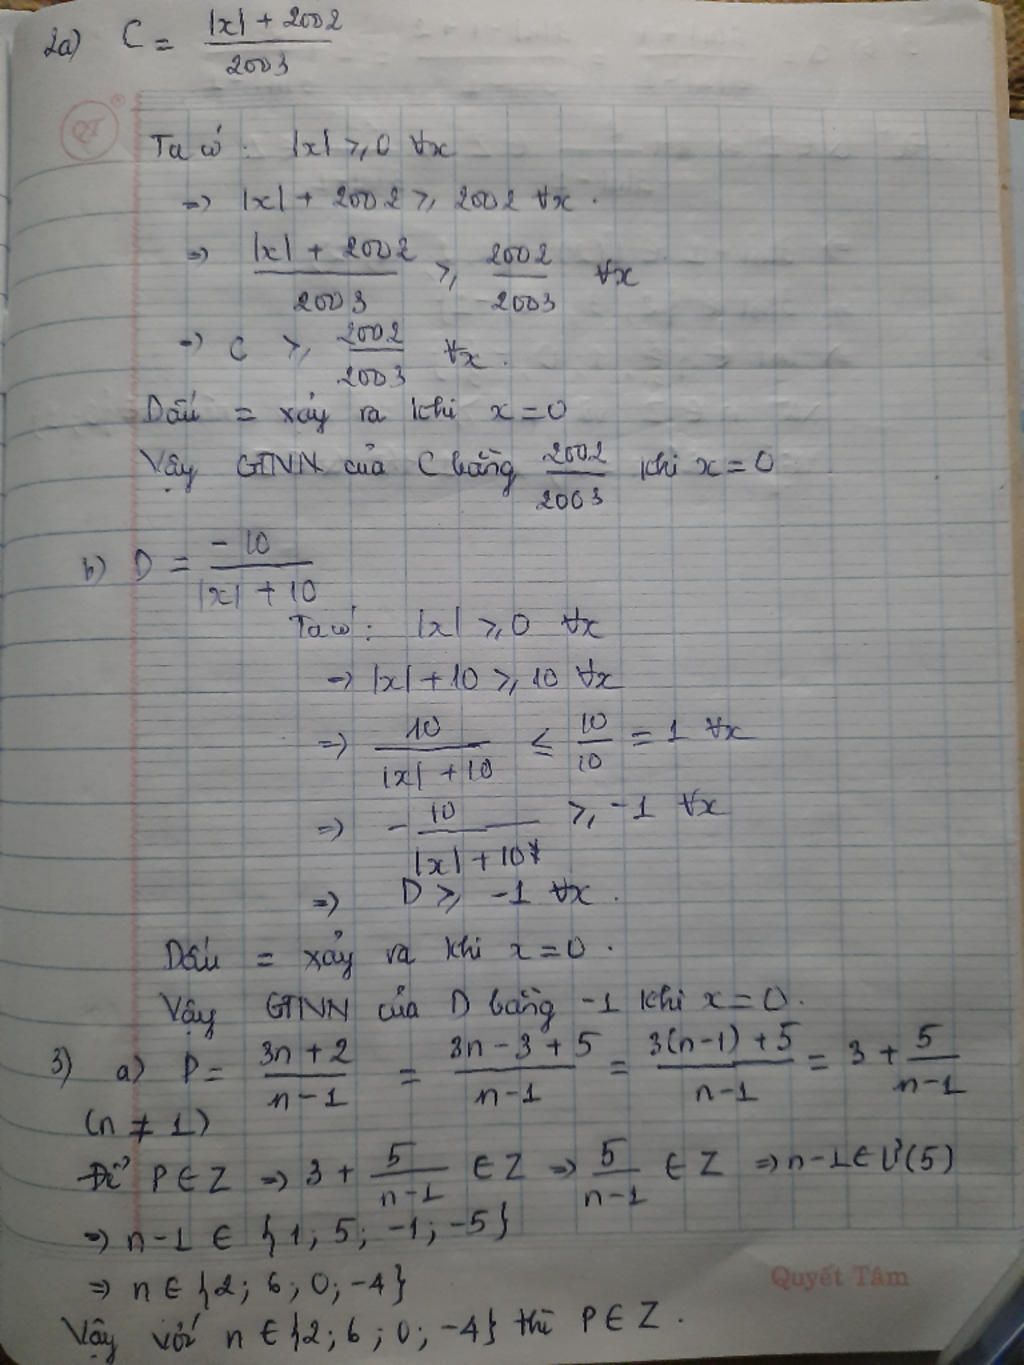 2a) C = |x| + 2002 / 2003
Ta có: |x| ≥ 0 ∀x
=> |x| + 2002 ≥ 2002 ∀x.
=> |x| + 2002 / 2003 ≥ 2002 / 2003 ∀x
=> C ≥ 2002 / 2003 ∀x.
Dấu = xảy ra khi x = 0
Vậy GTNN của C bằng 2002 / 2003 khi x = 0
b) D = -10 / |x| + 10
Ta có: |x| ≥ 0 ∀x
=> |x| + 10 ≥ 10 ∀x
=> 10 / |x| + 10 ≤ 10 / 10 = 1 ∀x
=> - 10 / |x| + 10 ≥ -1 ∀x
=> D ≥ -1 ∀x.
Dấu = xảy ra khi x = 0.
Vậy GTNN của D bằng -1 khi x = 0.
3) a) P = 3n + 2 / n - 1 = 3n - 3 + 5 / n - 1 = 3(n - 1) + 5 / n - 1 = 3 + 5 / n - 1
(n ≠ 1)
Để P ∈ Z => 3 + 5 / n - 1 ∈ Z => 5 / n - 1 ∈ Z => n - 1 ∈ Ư(5)
=> n - 1 ∈ {1; 5; -1; -5}
=> n ∈ {2; 6; 0; -4}
Vậy với n ∈ {2; 6; 0; -4} thì P ∈ Z.
Quyết Tâm
QT